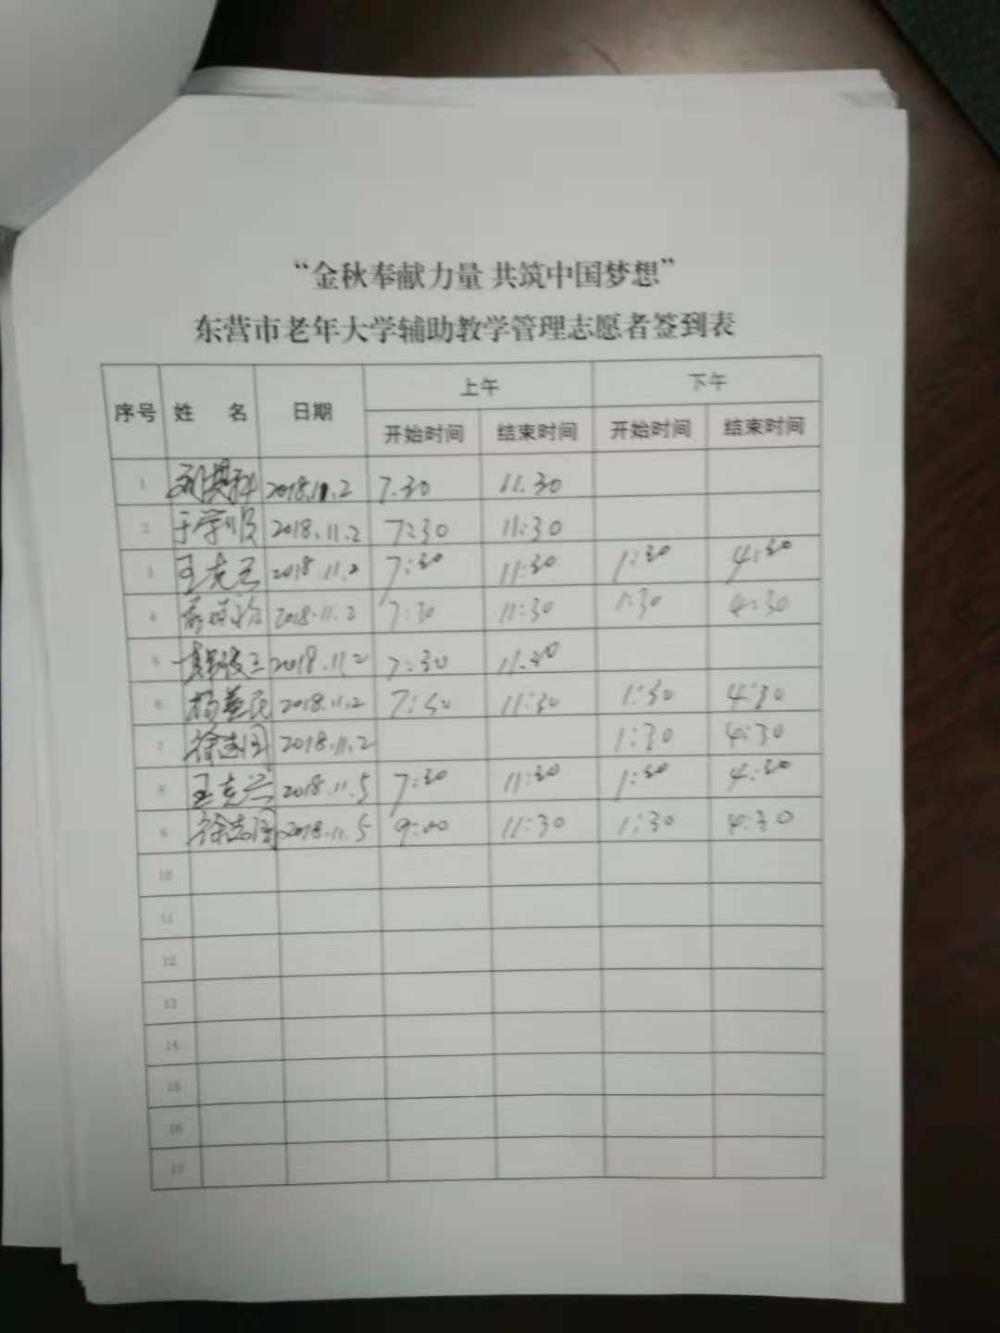 “金秋奉献力量 共筑中国梦想”
东营市老年大学辅助教学管理志愿者签到表
序号 姓 名 日期 上午 下午
开始时间 结束时间 开始时间 结束时间
1 2018.11.2 7.30 11.30
2 2018.11.2 7:30 11:30
3 王克 2018.11.2 7:30 11:30 1:30 4:30
4 2018.11.2 7:30 11:30 1:30 4:30
5 2018.11.2 7:30 11.30
6 杨 2018.11.2 7:30 11:30 1:30 4:30
7 徐志国 2018.11.2 1:30 4:30
8 王克兴 2018.11.5 7:30 11:30 1:30 4:30
9 徐志国 2018.11.5 9:00 11:30 1:30 4:30
10
11
12
13
14
15
16
17